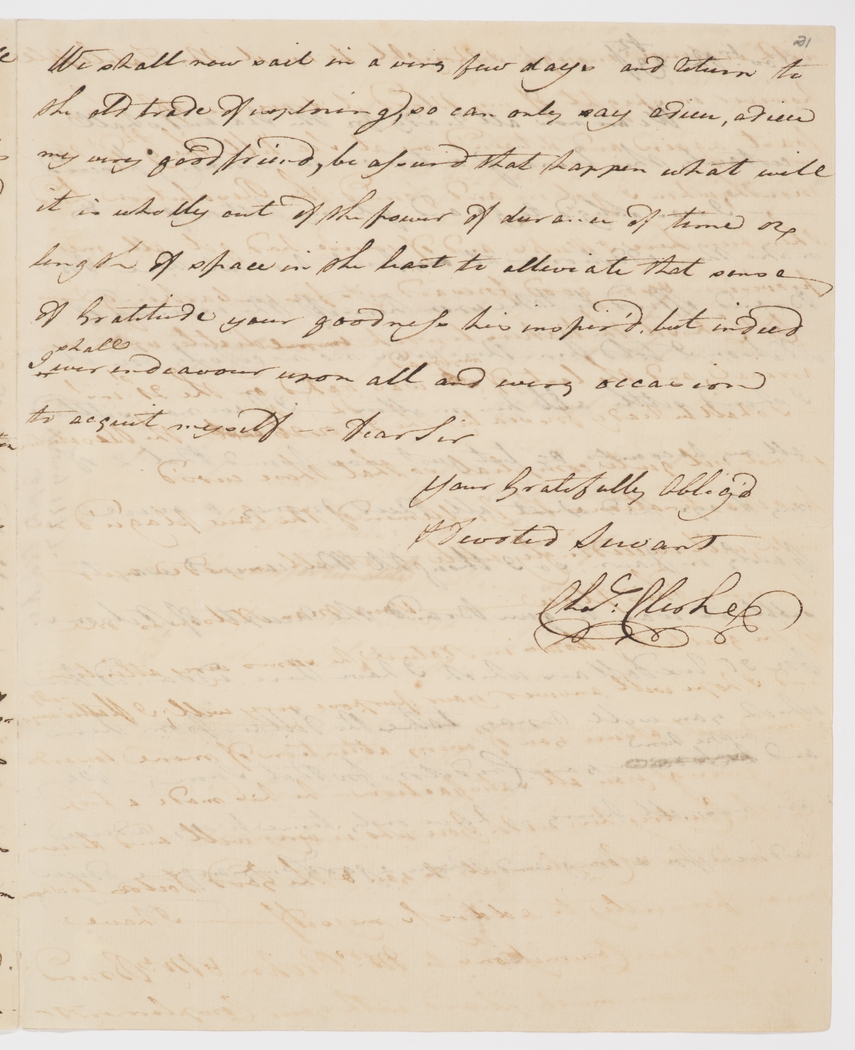 21
We shall now sail in a very few days and return to
the old trade of exploring, so can only say adieu, adieu
my very good friend, be assured that happen what will
it is wholly out of the power of durance of time or
length of space in the least to alleviate that sense
of Gratitude your goodness his inspir'd, but indeed
I shall
ever endeavour upon all and every occasion
to acquit myself — Dear Sir
Your Gratefully Oblig'd
& Devoted Servant
Chas. Clerke